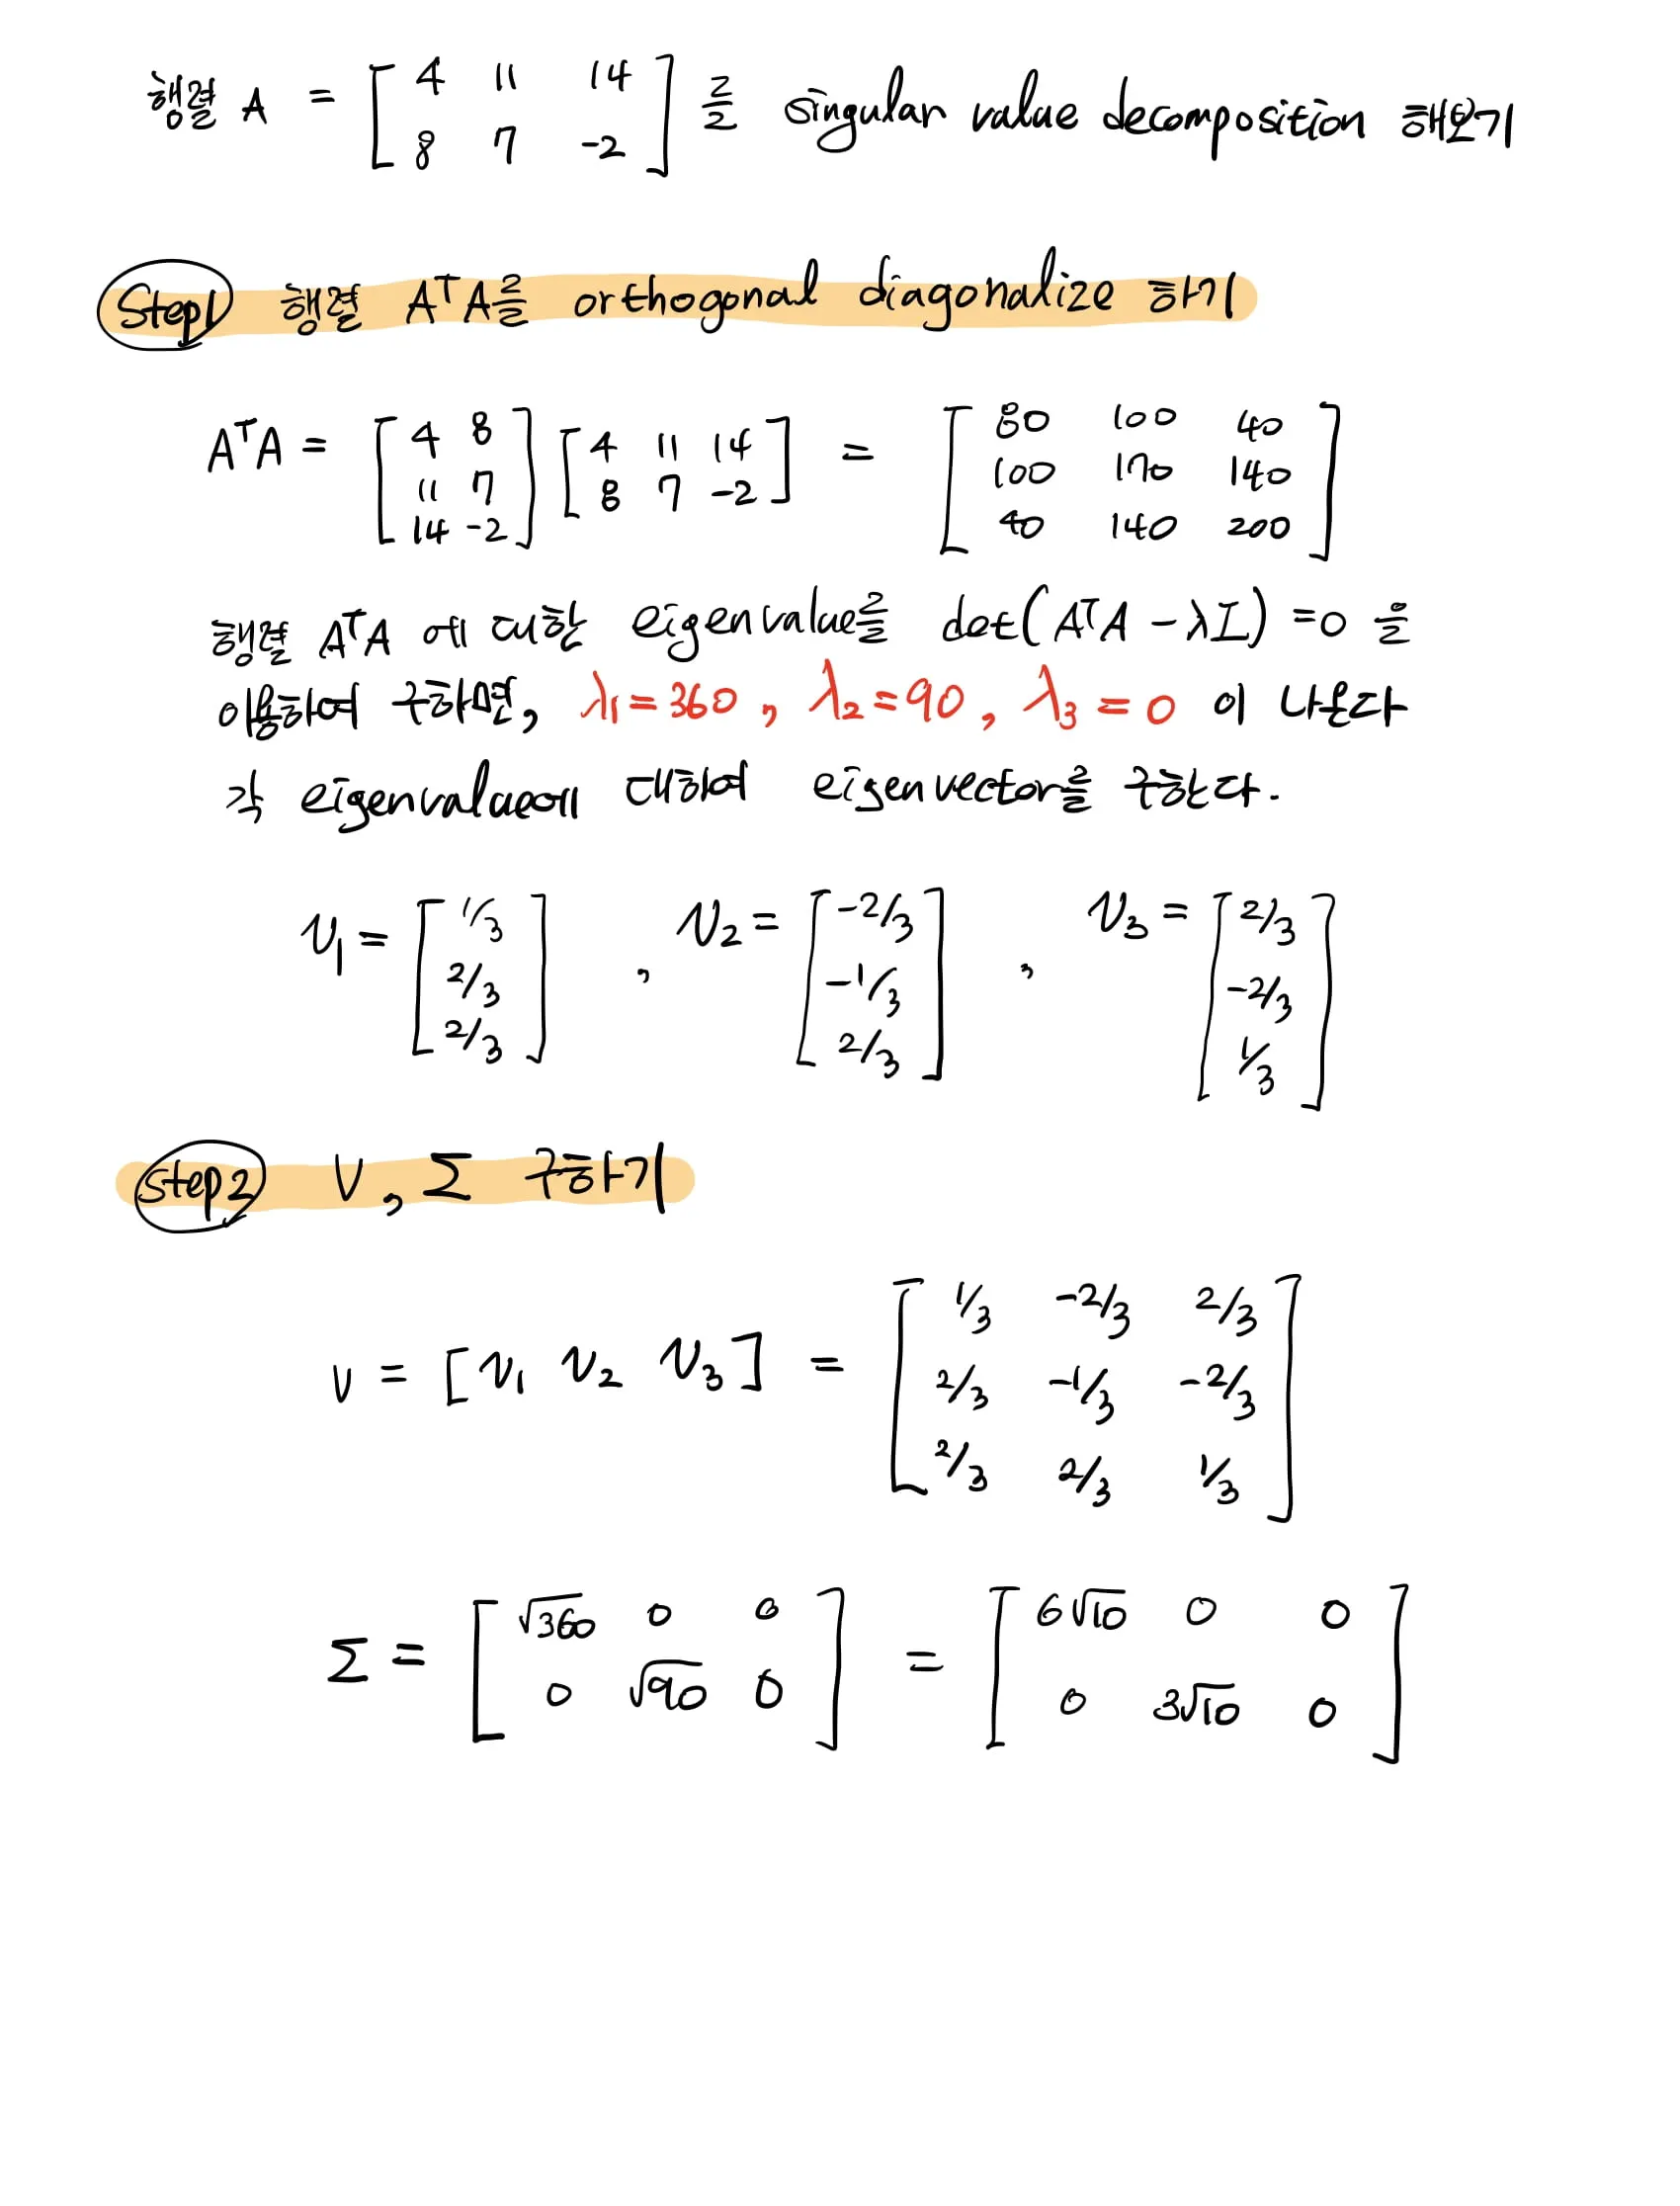 행렬 A = [ 4 11 14 ; 8 7 -2 ] 를 singular value decomposition 해보기
Step1 행렬 AᵀA를 orthogonal diagonalize 하기
AᵀA = [ 4 8 ; 11 7 ; 14 -2 ] [ 4 11 14 ; 8 7 -2 ] = [ 80 100 40 ; 100 170 140 ; 40 140 200 ]
행렬 AᵀA 에 대한 eigenvalue를 det(AᵀA - λI) = 0 을
이용하여 구하면, λ₁ = 360, λ₂ = 90, λ₃ = 0 이 나온다
각 eigenvalue에 대하여 eigenvector를 구한다.
v₁ = [ 1/3 ; 2/3 ; 2/3 ] , v₂ = [ -2/3 ; -1/3 ; 2/3 ] , v₃ = [ 2/3 ; -2/3 ; 1/3 ]
step2 V, Σ 구하기
V = [ v₁ v₂ v₃ ] = [ 1/3 -2/3 2/3 ; 2/3 -1/3 -2/3 ; 2/3 2/3 1/3 ]
Σ = [ √360 0 0 ; 0 √90 0 ] = [ 6√10 0 0 ; 0 3√10 0 ]